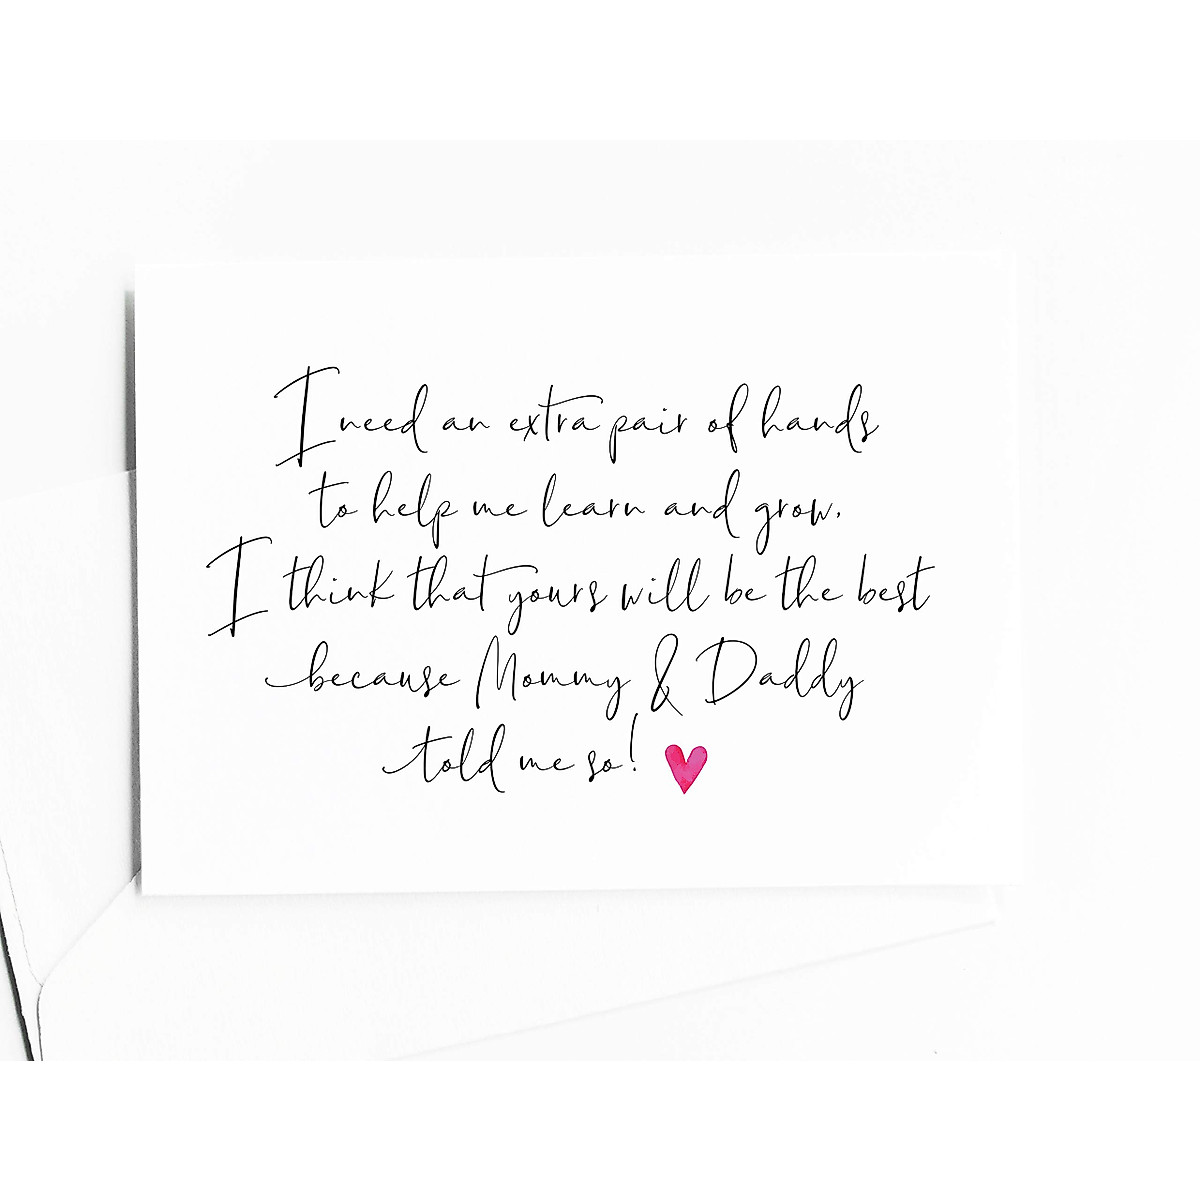 I need an extra pair of hands
to help me learn and grow.
I think that yours will be the best
because Mommy & Daddy
told me so!